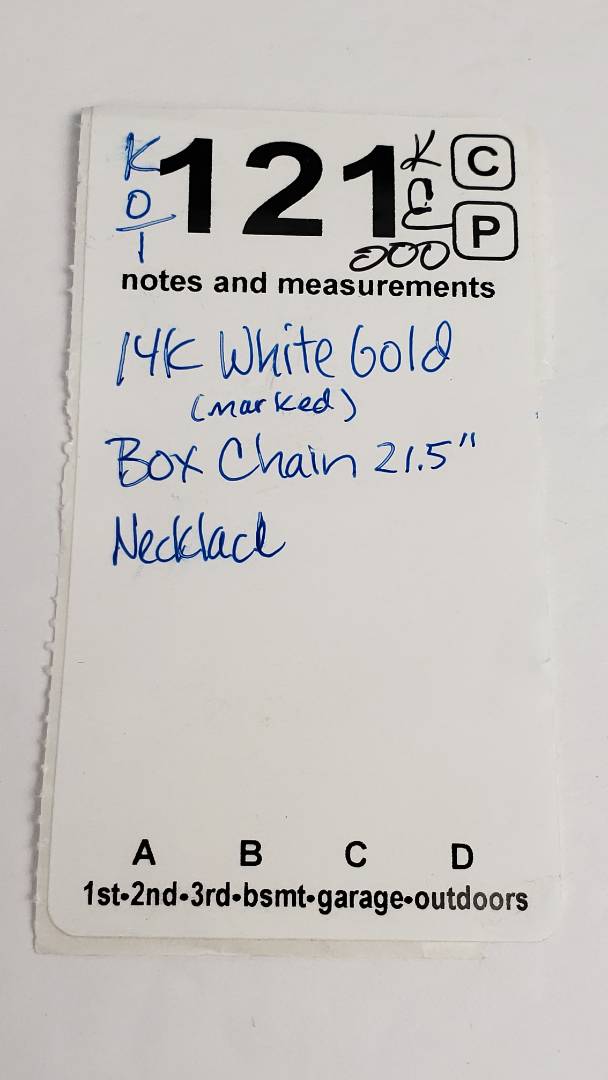 K
O
1
121
K
C
000
C
P
notes and measurements
14K White Gold
(marked)
Box Chain 21.5"
Necklace
A B C D
1st•2nd•3rd•bsmt•garage•outdoors